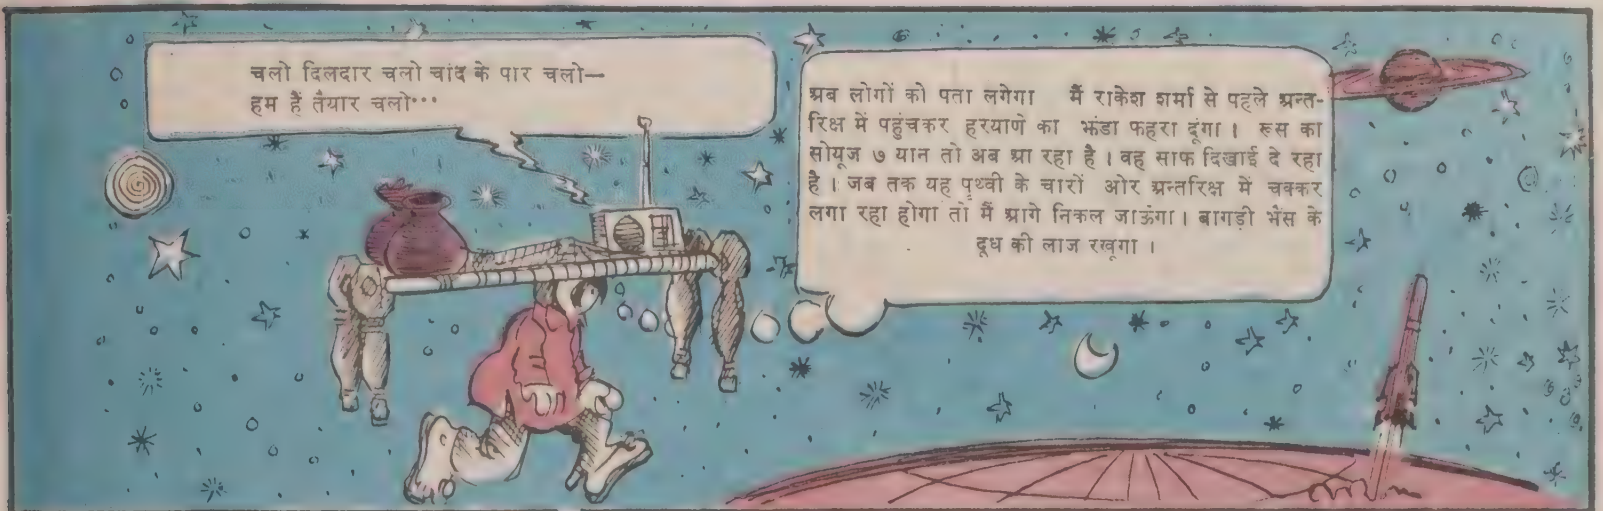 चलो दिलदार चलो चांद के पार चलो—
हम हैं तैयार चलो···
अब लोगों को पता लगेगा मैं राकेश शर्मा से पहले अन्त-
रिक्ष में पहुंचकर हरयाणे का झंडा फहरा दूंगा। रूस का
सोयूज ७ यान तो अब आ रहा है। वह साफ दिखाई दे रहा
है। जब तक यह पृथ्वी के चारों ओर अन्तरिक्ष में चक्कर
लगा रहा होगा तो मैं आगे निकल जाऊंगा। बागड़ी भैंस के
दूध की लाज रखूगा।